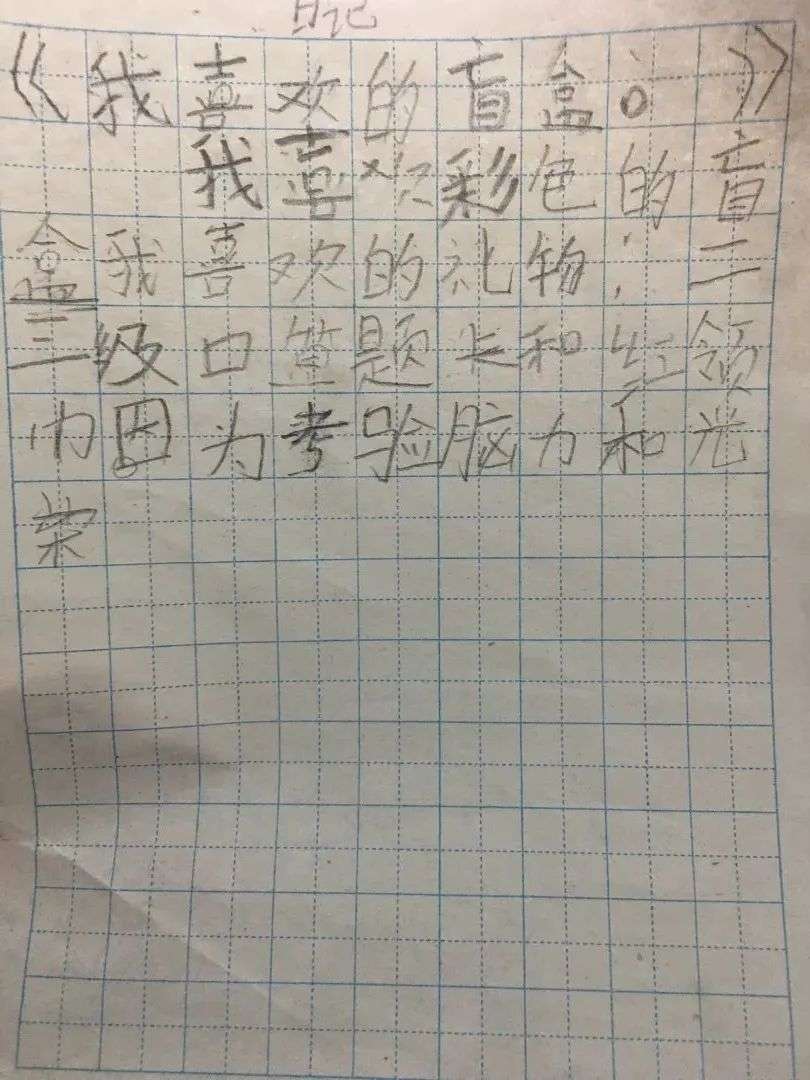 日记
《我喜欢的盲盒。》
我喜欢彩色的盲
盒我喜欢的礼物:二
三级口算题卡和红领
巾因为考验脑力和光
荣